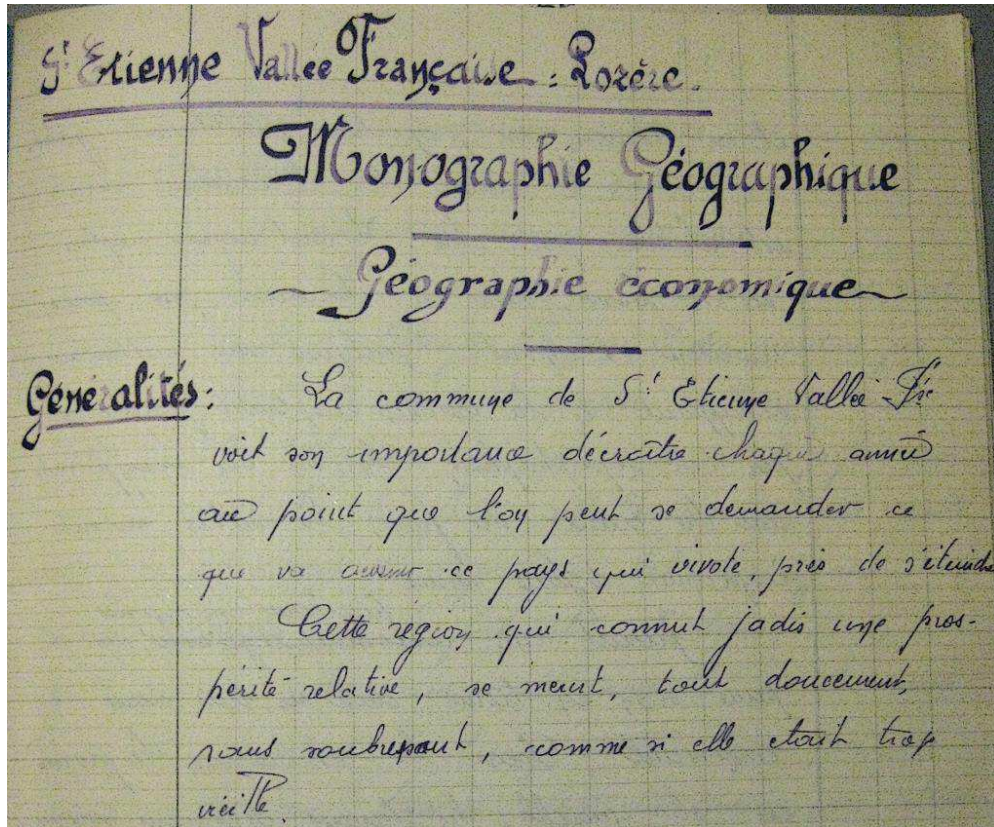 St Etienne Vallée Française : Lozère.
Monographie Géographique
~ Géographie économique ~
Généralités : La commune de St Etienne Vallée Fse
voit son importance décroître chaque année
au point que l'on peut se demander ce
que va ce pays qui vivote, près de s'éteindre
Cette région qui connut jadis une pros-
périté relative, se meurt, tout doucement,
sans , comme si elle était trop
vieille.